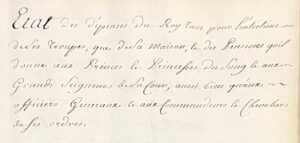 Etat des dépenses du Roy tant pour l'entretien
de ses troupes, que de sa maison, et des Pensions qu'il
donne aux Princes et Princesses du Sang et aux
Grands Seigneurs de sa Cour, aussi bien qu'aux
officiers Generaux et aux Commandeurs et Chevaliers
de ses ordres.